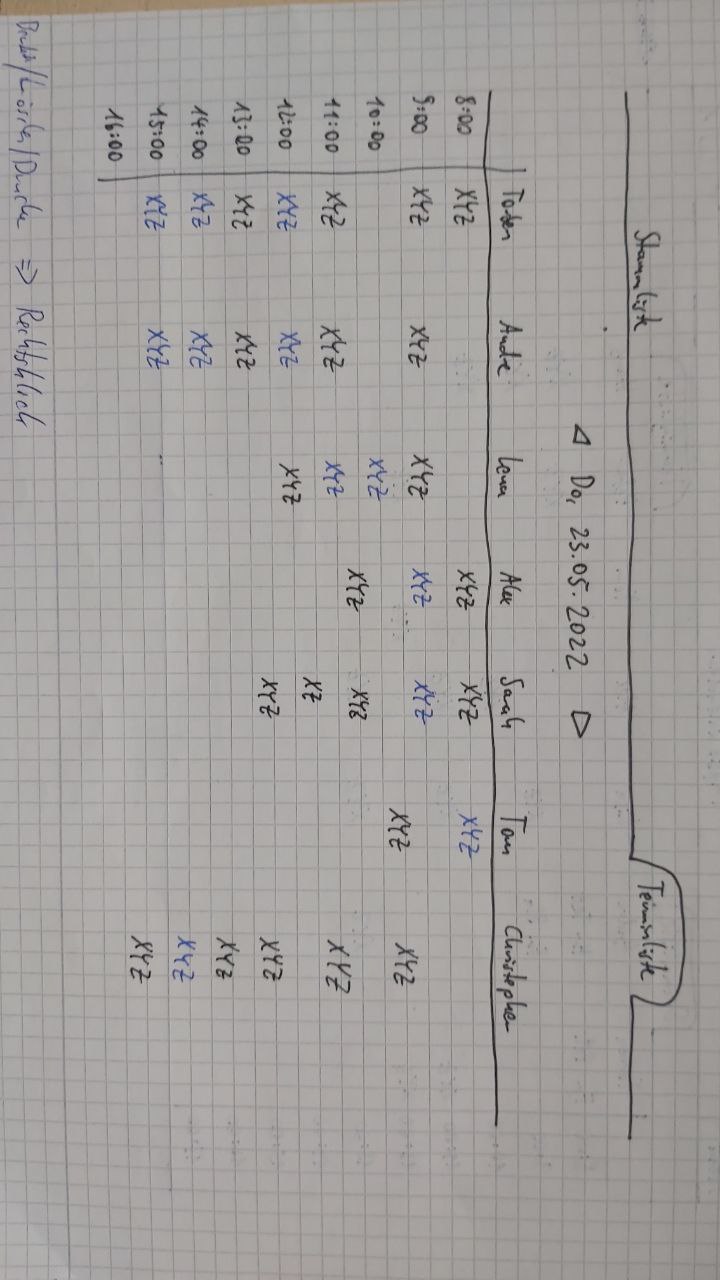 Stammliste Terminliste
◁ Do, 23.05.2022 ▷
Torben Andre Lena Alex Sarah Tom Christopher
8:00 XYZ XYZ XYZ XYZ
9:00 XYZ XYZ XYZ XYZ XYZ
XYZ XYZ
10:00 XYZ
XYZ XYZ
11:00 XYZ XYZ XYZ XYZ
XZ
12:00 XYZ XYZ XYZ
XYZ XYZ
13:00 XYZ XYZ
XYZ
14:00 XYZ XYZ
XYZ
15:00 XYZ XYZ
XYZ
16:00
/Löschen/Drucke => Rechtsklick